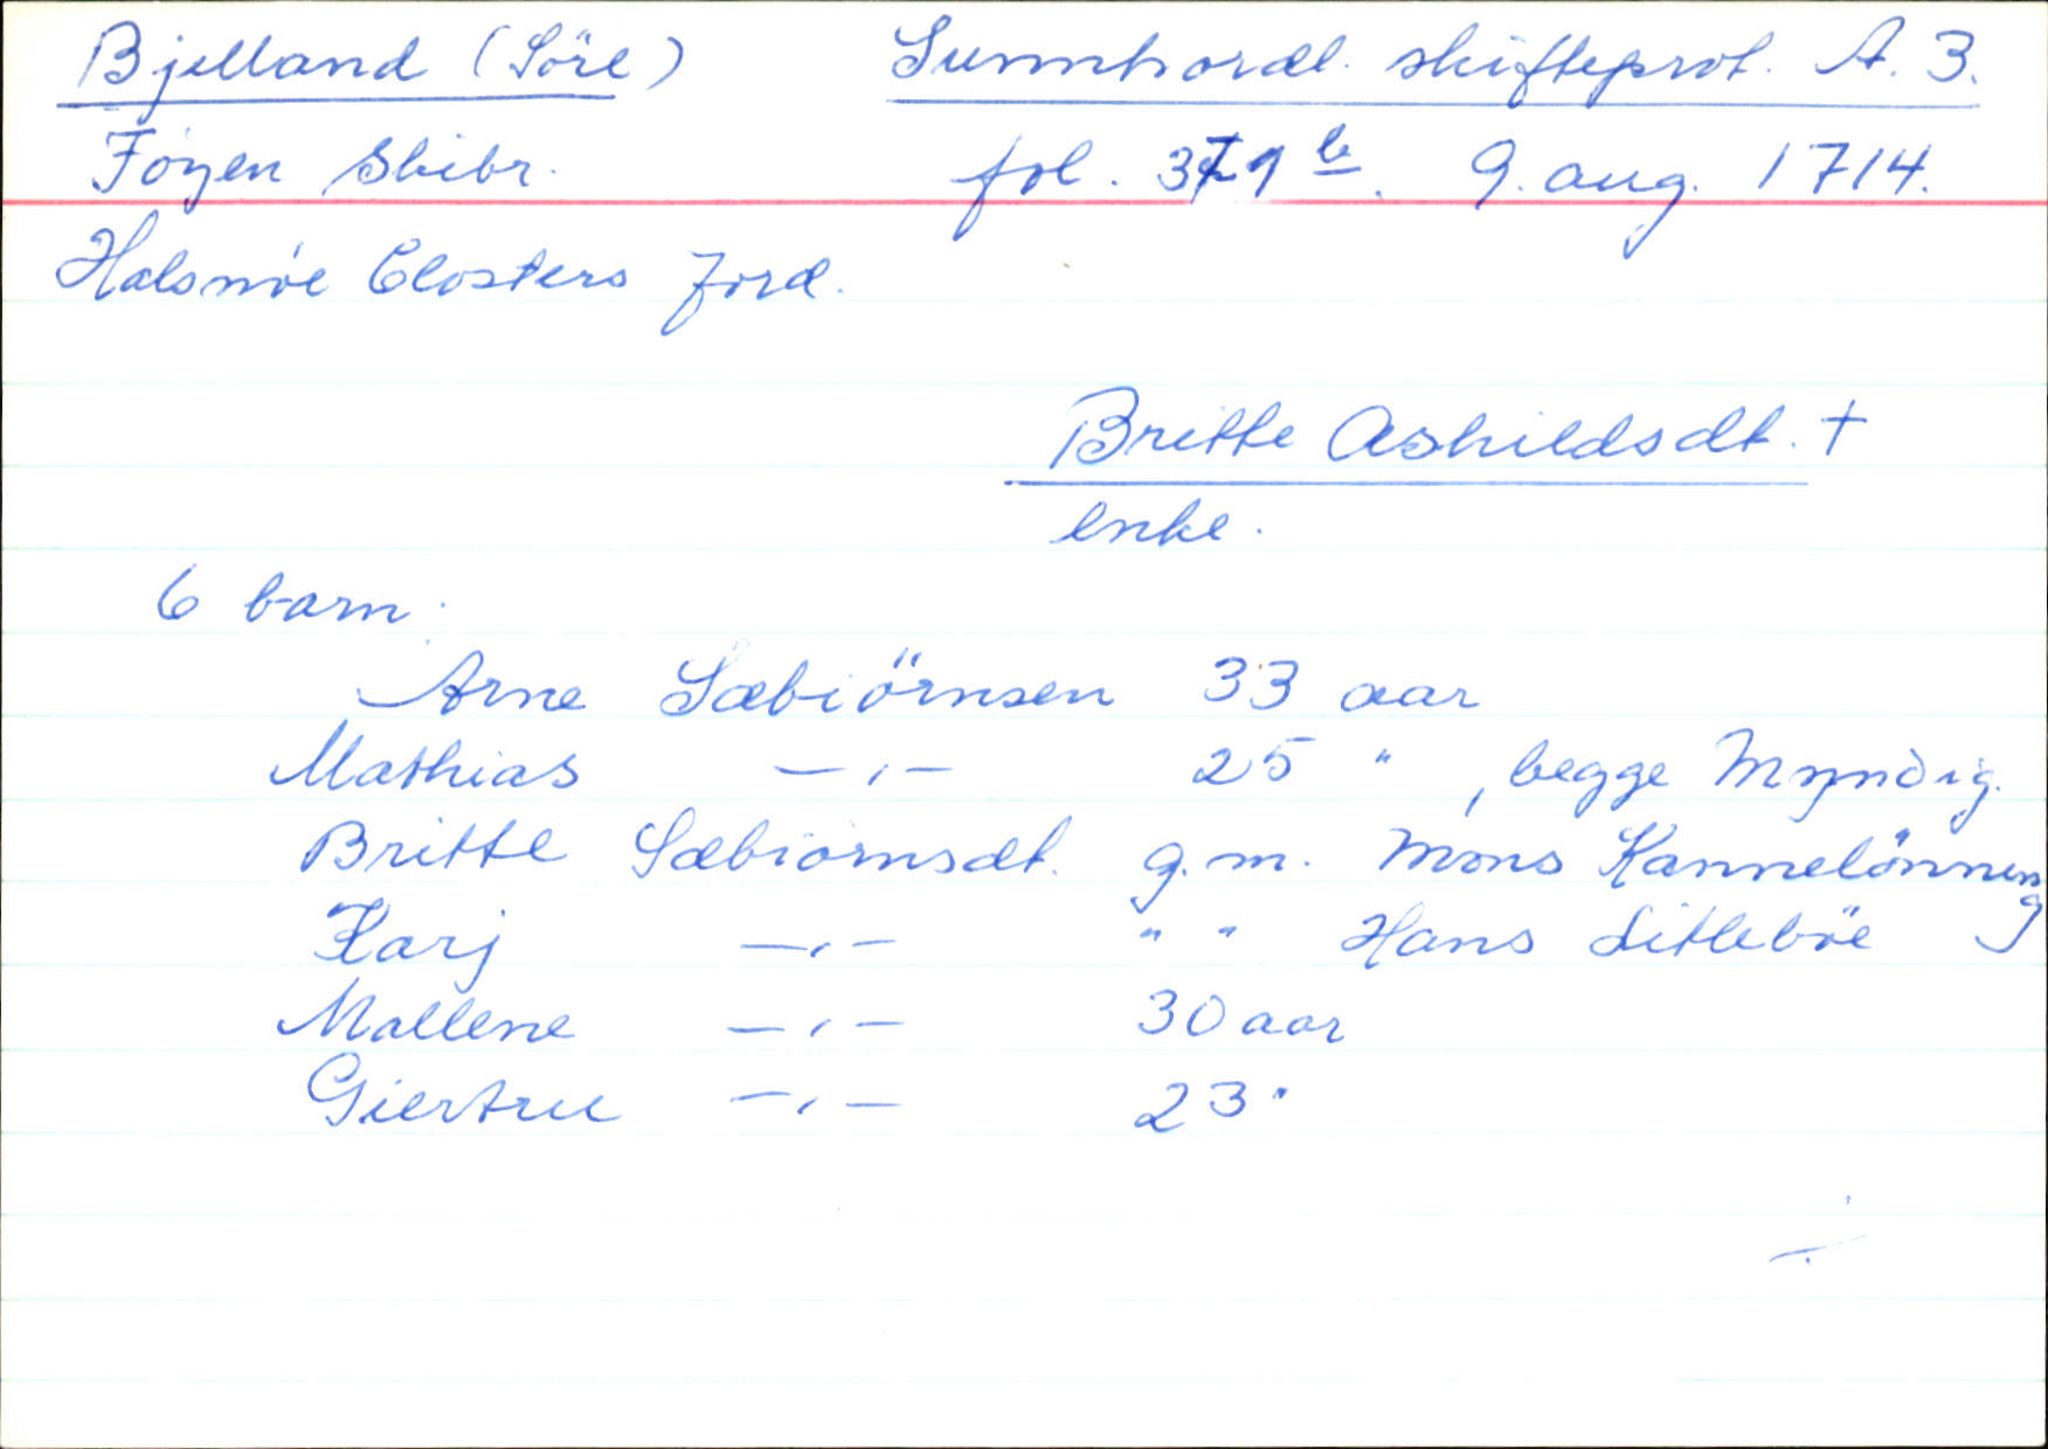 Bjelland (Söre) Sunnhordl. skifteprot. A. 3.
Föyen Skibr. fol. 371 b. 9. aug. 1714.
Halsnöe Closters Jord.
Britte Askildsdt. +
enke.
6 barn:
Arne Sæbiörnsen 33 aar
Mathias —〃— 25 " , begge Myndig.
Britte Sæbiörnsdt. g.m. Mons Kannelönning
Karj —〃— " " Hans Litleböe
Mallene —〃— 30 aar
Giertru —〃— 23 "